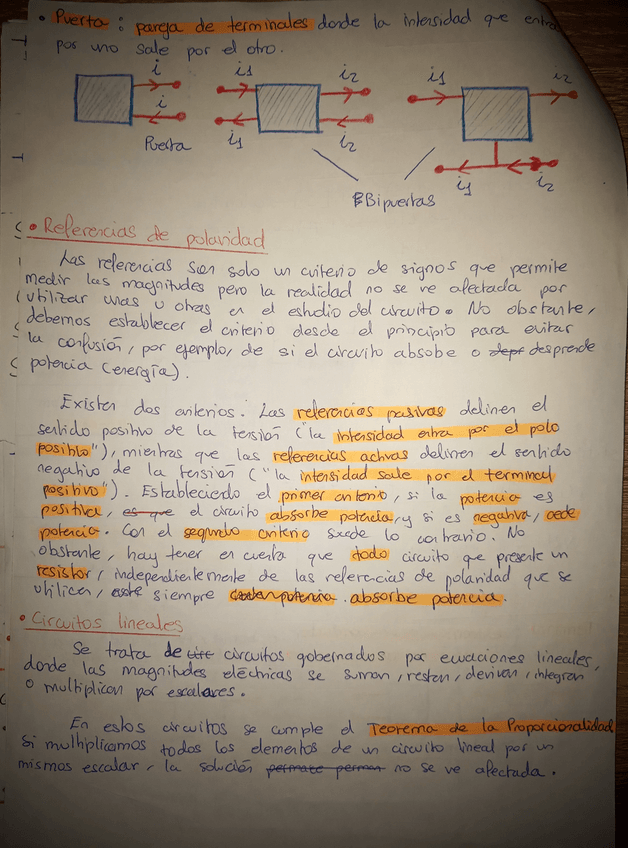 • Puerta: pareja de terminales donde la intensidad que entra
por uno sale por el otro.
i
i
Puerta
i1
i2
i1
i2
i1
i2
i1
i2
Bipuertas
• Referencias de polaridad
Las referencias son solo un criterio de signos que permite
medir las magnitudes pero la realidad no se ve afectada por
utilizar unas u otras en el estudio del circuito. No obstante,
debemos establecer el criterio desde el principio para evitar
la confusión, por ejemplo, de si el circuito absorbe o desprende
potencia (energía).
Existen dos criterios. Las referencias pasivas definen el
sentido positivo de la tensión ("la intensidad entra por el polo
positivo"), mientras que las referencias activas definen el sentido
negativo de la tensión ("la intensidad sale por el terminal
positivo"). Estableciendo el primer criterio, si la potencia es
positiva, es que el circuito absorbe potencia, y si es negativa, cede
potencia. Con el segundo criterio sucede lo contrario. No
obstante, hay tener en cuenta que todo circuito que presente un
resistor, independientemente de las referencias de polaridad que se
utilicen, siempre absorbe potencia.
• Circuitos lineales
Se trata de circuitos gobernados por ecuaciones lineales,
donde las magnitudes eléctricas se suman, restan, derivan, integran
o multiplican por escalares.
En estos circuitos se cumple el Teorema de la Proporcionalidad
Si multiplicamos todos los elementos de un circuito lineal por un
mismos escalar, la solución no se ve afectada.